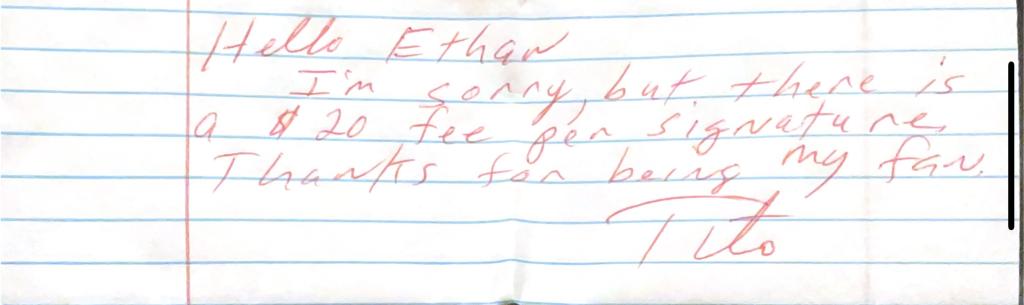 Hello Ethan
I'm sorry, but there is
a $20 fee per signature.
Thanks for being my fan.
Tito